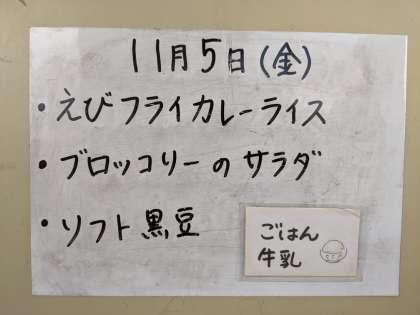 11月5日(金)
・えびフライカレーライス
・ブロッコリーのサラダ
・ソフト黒豆
ごはん
牛乳